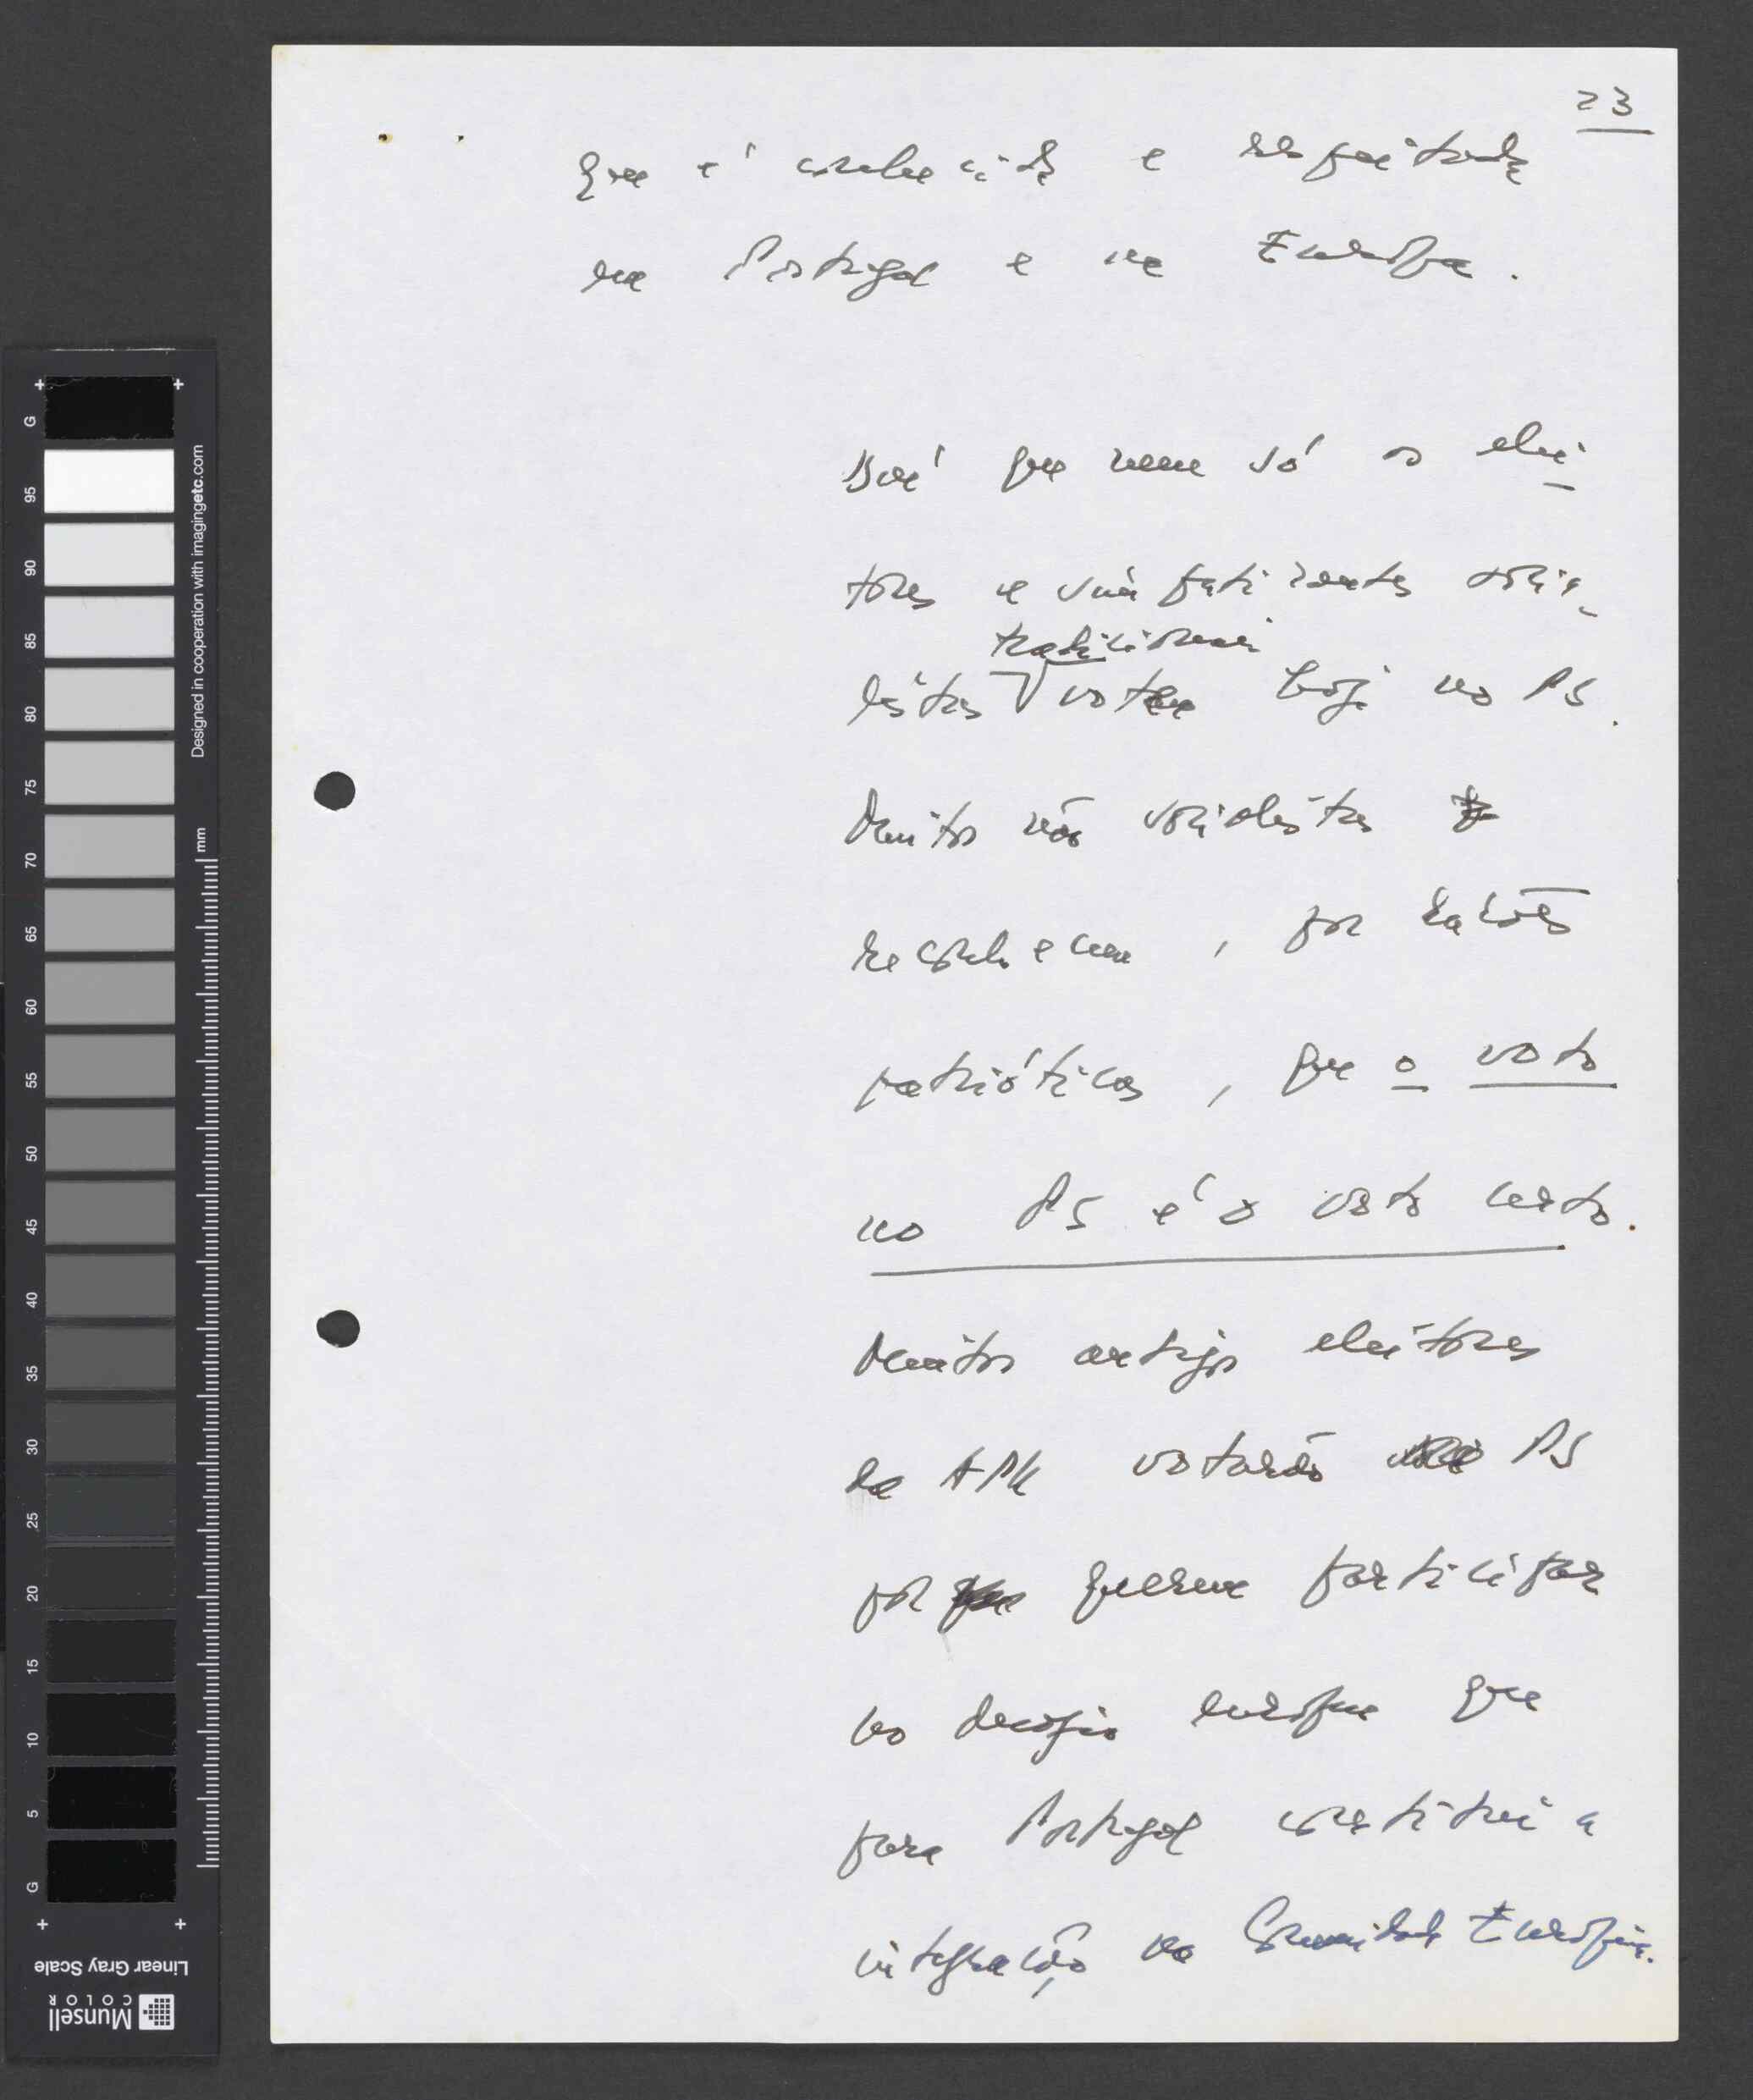 23
que é conhecida e respeitada
em Portugal e na Europa.
que nem só os elei-
tores e simpatizantes socia-
tradicionais
listas votam hoje no PS.
Muitos não socialistas
reconhecem, por razões
patrióticas, que o voto
no PS é o voto certo.
Muitos antigos eleitores
da APU votarão PS
por querem participar
no desafio europeu que
para Portugal constitui a
integração na Comunidade Europeia.
G 95 90 85 80 75 70 65 60 55 50 45 40 35 30 25 20 15 10 5 G
mm
Designed in cooperation with imagingetc.com
Linear Gray Scale
Munsell
COLOR